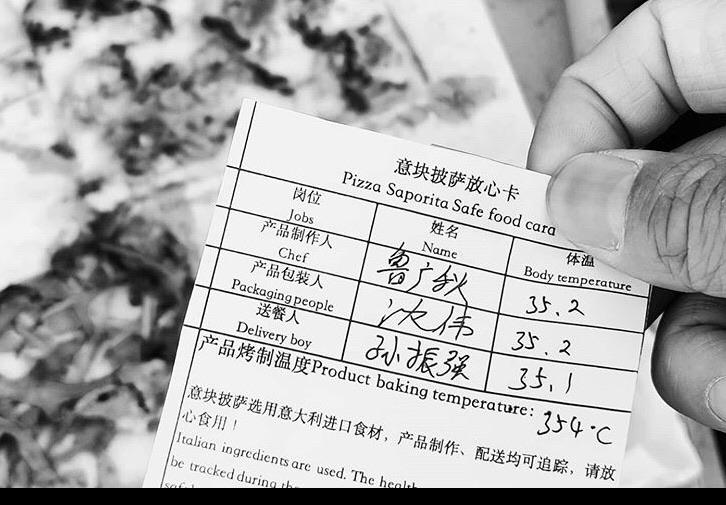 意块披萨放心卡
Pizza Saporita Safe food card
岗位 姓名 体温
Jobs Name Body temperature
产品制作人 鲁广秋 35.2
Chef
产品包装人 沈伟 35.2
Packaging people
送餐人 孙振强 35.1
Delivery boy
产品烤制温度Product baking temperature: 354°C
意块披萨选用意大利进口食材，产品制作、配送均可追踪，请放
心食用！
Italian ingredients are used. The
be tracked during